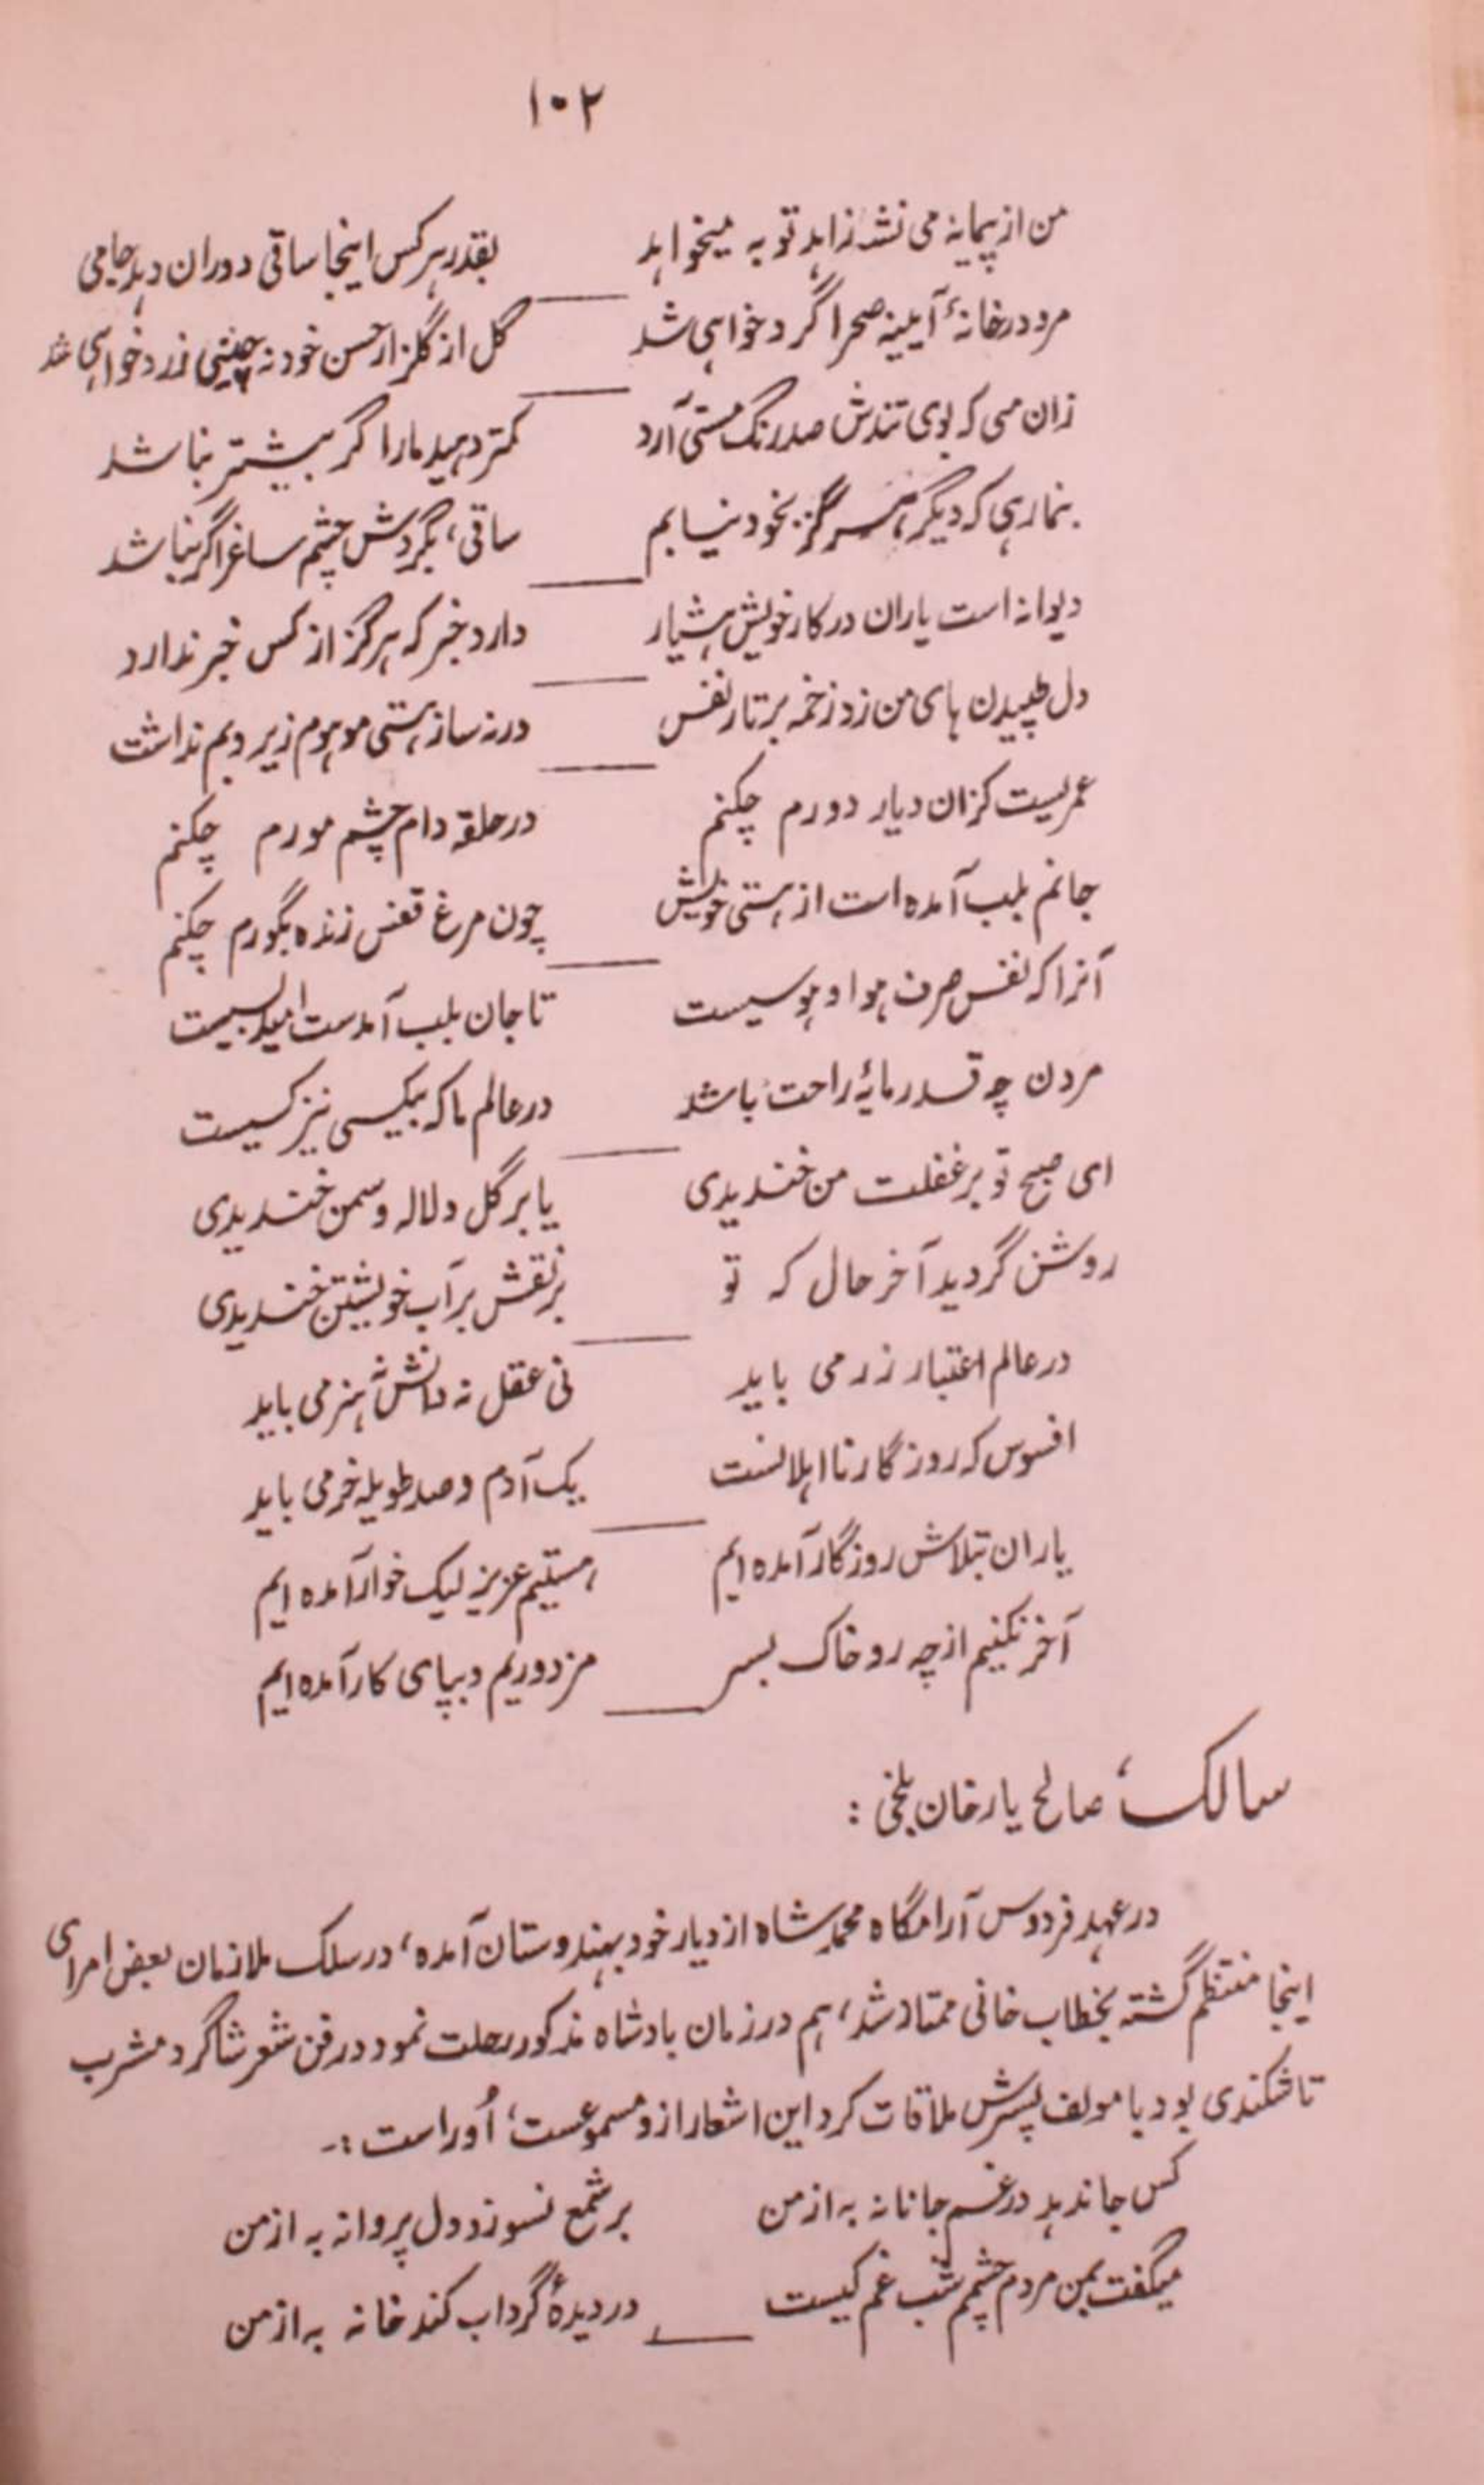 ۱۰۲
من از پیمانه می نشه زاهد توبه میخواهد بقدر هر کس اینجا ساقی دوران دهد جامی
مرو در خانهٔ آیینه صحرا گرد خواهی شد گل از گلزار حسن خود نه چینی زرد خواهی شد
زان می که بوی تندش صد رنگ مستی آرد کمتر دهید ما را گر بیشتر نباشد
بنما رهی که دیگر هرگز بخود نیابم ساقی، بگردش چشم ساغر اگر نباشد
دیوانه است یاران در کار خویش هشیار دارد خبر که هرگز از کس خبر ندارد
دل طپیدن های من زد زخمه بر تار نفس ورنه ساز هستی موهوم زیر و بم نداشت
عمریست کزان دیار دورم چکنم در حلقه دام چشم مورم چکنم
جانم بلب آمده است از هستی خویش چون مرغ قفس زنده بگورم چکنم
آنرا که نفس صرف هوا و هوسیست تا جان بلب آمدست امید بسیست
مردن چه قدر مایهٔ راحت باشد در عالم ما که بیکسی نیز کسیست
ای صبح تو بر غفلت من خندیدی یا بر گل و لاله و سمن خندیدی
روشن گردید آخر حال که تو بر نقش بر آب خویشتن خندیدی
در عالم اعتبار زر می باید نی عقل نه دانش نه هنر می باید
افسوس که روزگار نا اهلانست یک آدم و صد طویله خر می باید
یاران بتلاش روزگار آمده ایم هستیم عزیز لیک خوار آمده ایم
آخر نکنیم از چه رو خاک بسر مزدوریم و بپای کار آمده ایم
سالک، صالح یار خان بلخی :
در عهد فردوس آرامگاه محمد شاه از دیار خود بهندوستان آمده، در سلک ملازمان بعض امرای
اینجا منتظم گشته بخطاب خانی ممتاز شد، هم در زمان بادشاه مذکور رحلت نمود در فن شعر شاگرد مشرب
تاشکندی بود با مولف پسرش ملاقات کرد این اشعار ازو مسموعست، اُو راست :-
کس جا ندهد در غم جانانه به از من بر شمع نسوزد دل پروانه به از من
میگفت بمن مردم چشم شب غم کیست در دیدهٔ گرداب کند خانه به از من